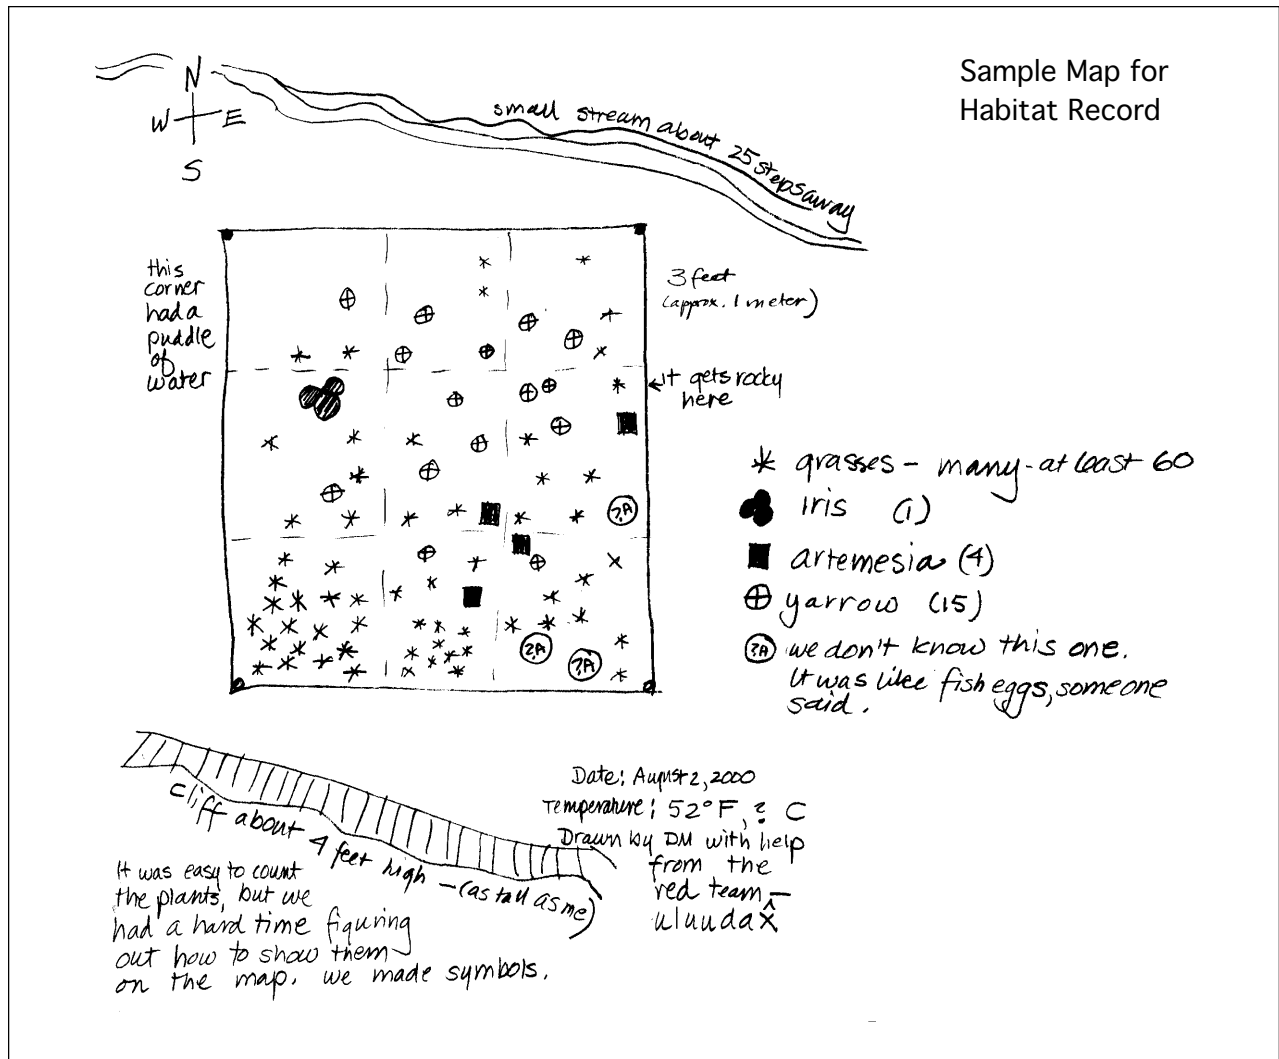 Sample Map for
Habitat Record
N
W E
S
small stream about 25 steps away
this
corner
had a
puddle
of
water
3 feet
(approx. 1 meter)
it gets rocky
here
?A
?A
?A
grasses - many - at least 60
iris (1)
artemesia (4)
yarrow (15)
?A we don't know this one.
It was like fish eggs, someone
said.
cliff about 4 feet high - (as tall as me)
Date: August 2, 2000
Temperature: 52° F, ? C
Drawn by DM with help
from the
red team -
uluudax̂
It was easy to count
the plants, but we
had a hard time figuring
out how to show them
on the map. we made symbols.